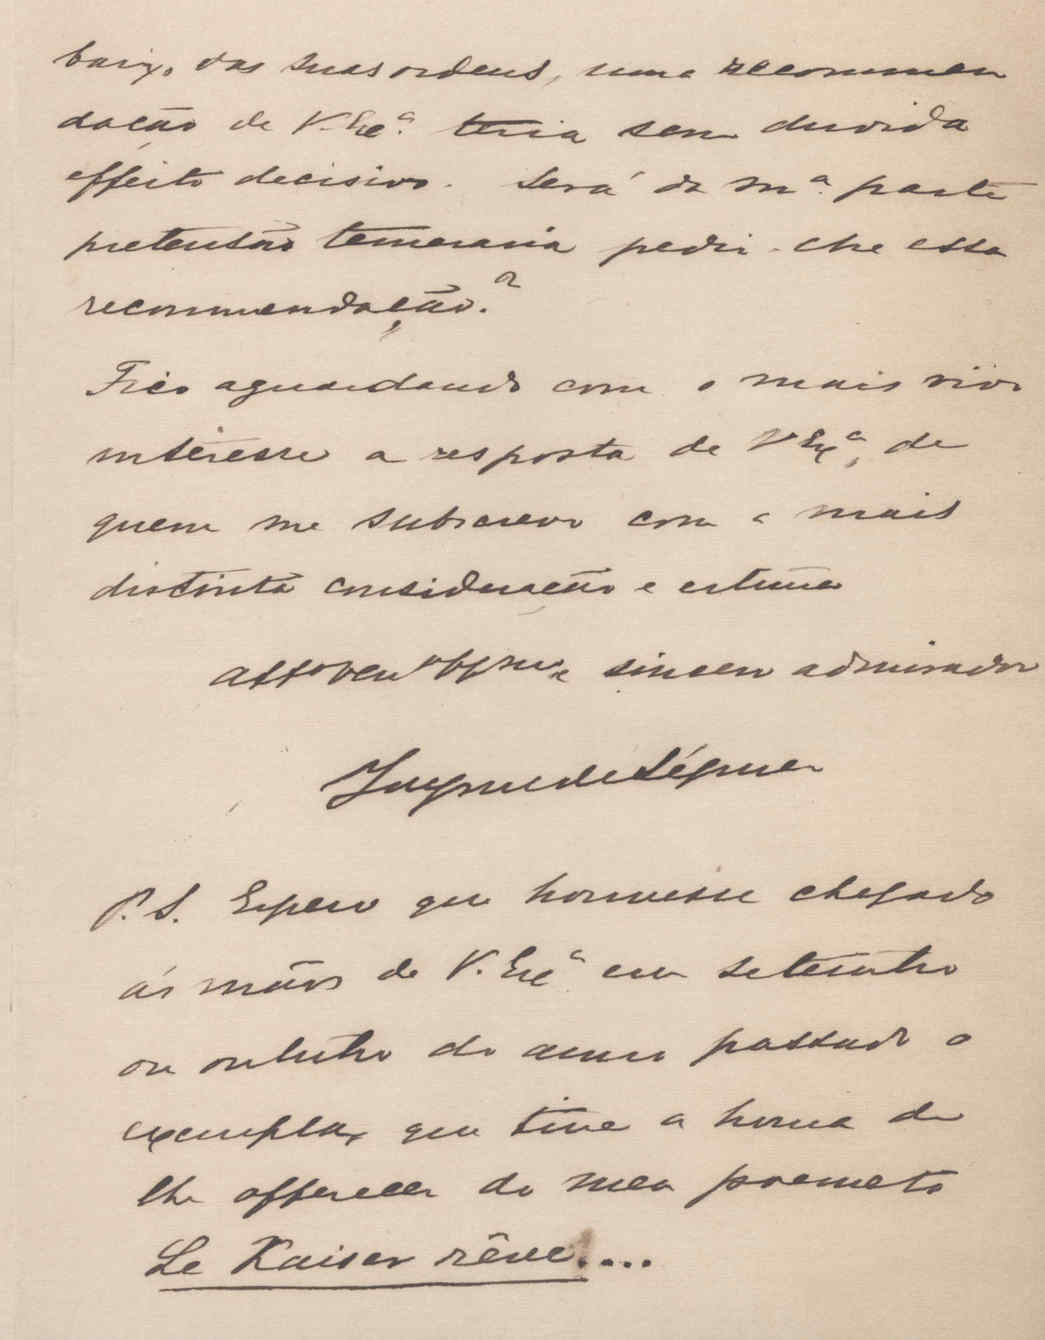 baixo das suas ordens, uma recommen
dação de V. Exª. teria sem duvida
effeito decisivo. Será da mª. parte
pretensão temeraria pedir-lhe essa
recommendação?
Fico aguardando com o mais vivo
interesse a resposta de V Exª, de
quem me subscrevo com a mais
distincta consideração e estima
attº ven e sincero admirador
Jayme de Séguier
P. S. Espero que houvesse chegado
ás mãos de V. Exª em setembro
ou outubro do anno passado o
exemplar que tive a honra de
lhe offerecer do meu poemeto
Le Kaiser rêve....